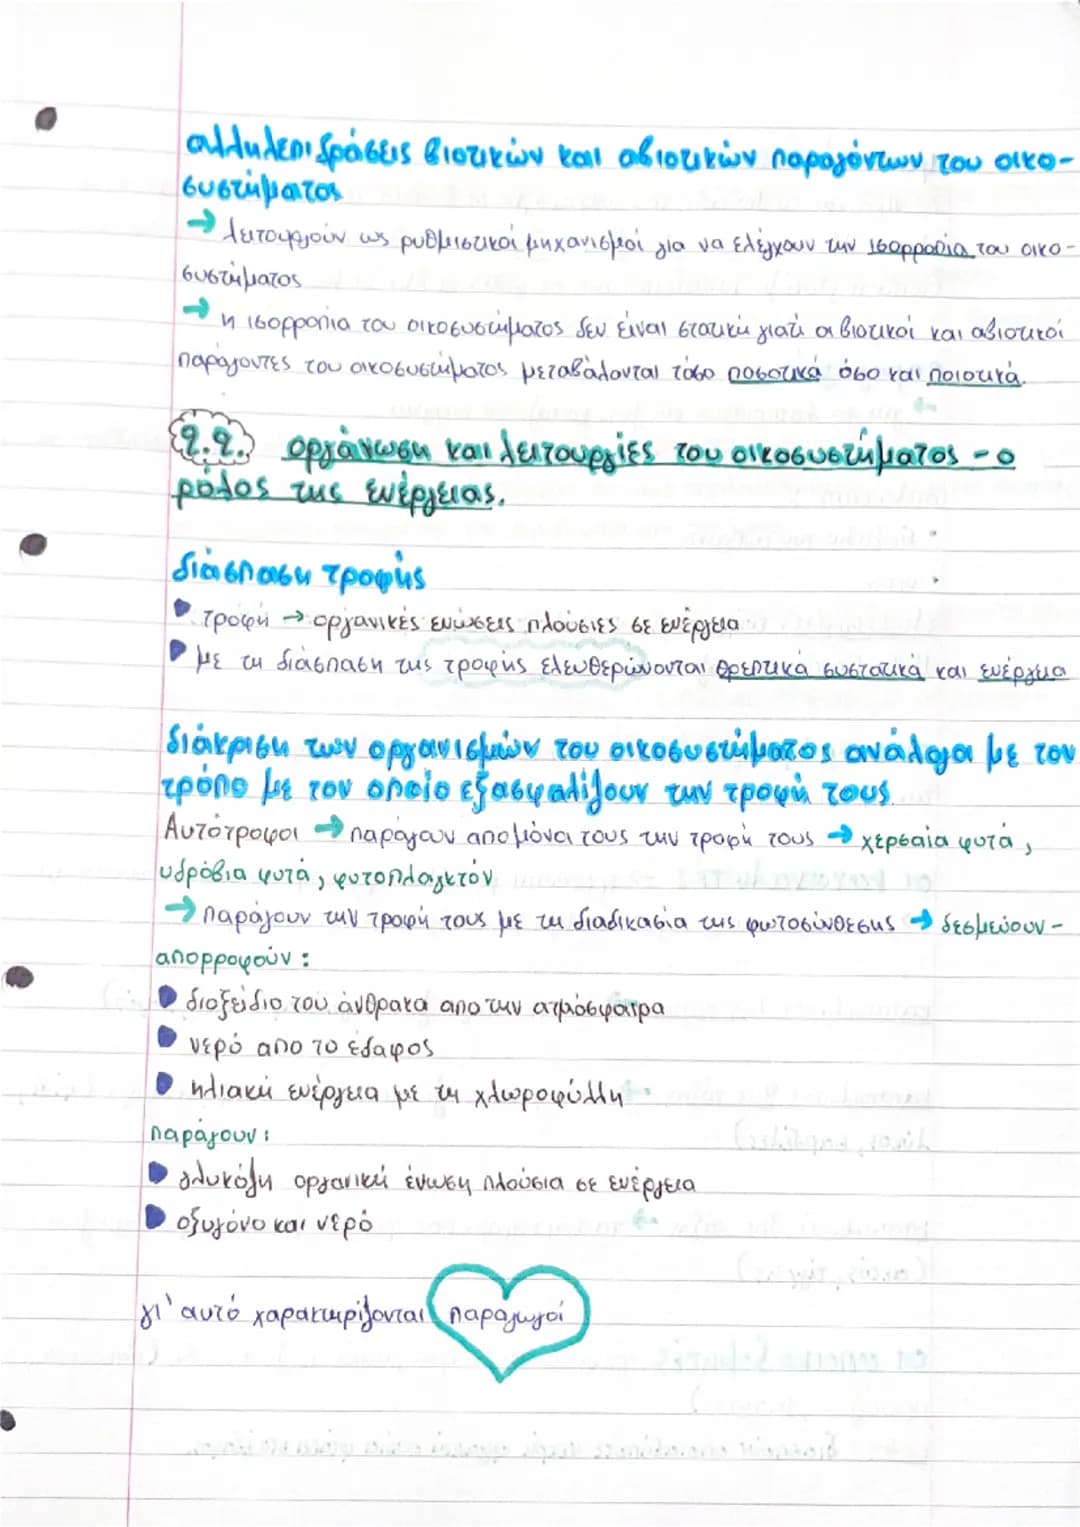 αλληλεπιδράσεις βιοτικών και αβιοτικών παραγόντων του οικο-
συστήματος
→ λειτουργούν ως ρυθμιστικοί μηχανισμοί για να ελέγχουν την ισορροπία του οικο-
συστήματος
→ η ισορροπία του οικοσυστήματος δεν είναι στατική γιατί οι βιοτικοί και αβιοτικοί
παράγοντες του οικοσυστήματος μεταβάλονται τόσο ποσοτικά όσο και ποιοτικά.
2.2. οργάνωση και λειτουργίες του οικοσυστήματος - ο
ρόλος της ενέργειας.
διάσπαση τροφής
τροφή → οργανικές ενώσεις πλούσιες σε ενέργεια
με τη διάσπαση της τροφής ελευθερώνονται θρεπτικά συστατικά και ενέργεια
διάκριση των οργανισμών του οικοσυστήματος ανάλογα με τον
τρόπο με τον οποίο εξασφαλίζουν την τροφή τους
Αυτότροφοι → παράγουν απο μόνα τους την τροφή τους → χερσαία φυτά,
υδρόβια φυτά, φυτοπλαγκτόν
→ παράγουν την τροφή τους με τη διαδικασία της φωτοσύνθεσης → δεσμεύουν -
απορροφούν:
διοξείδιο του άνθρακα απο την ατμόσφαιρα
νερό απο το έδαφος
ηλιακή ενέργεια με τη χλωροφύλλη
παράγουν:
γλυκόζη οργανική ένωση πλούσια σε ενέργεια
οξυγόνο και νερό
γι' αυτό χαρακτηρίζονται παραγωγοί